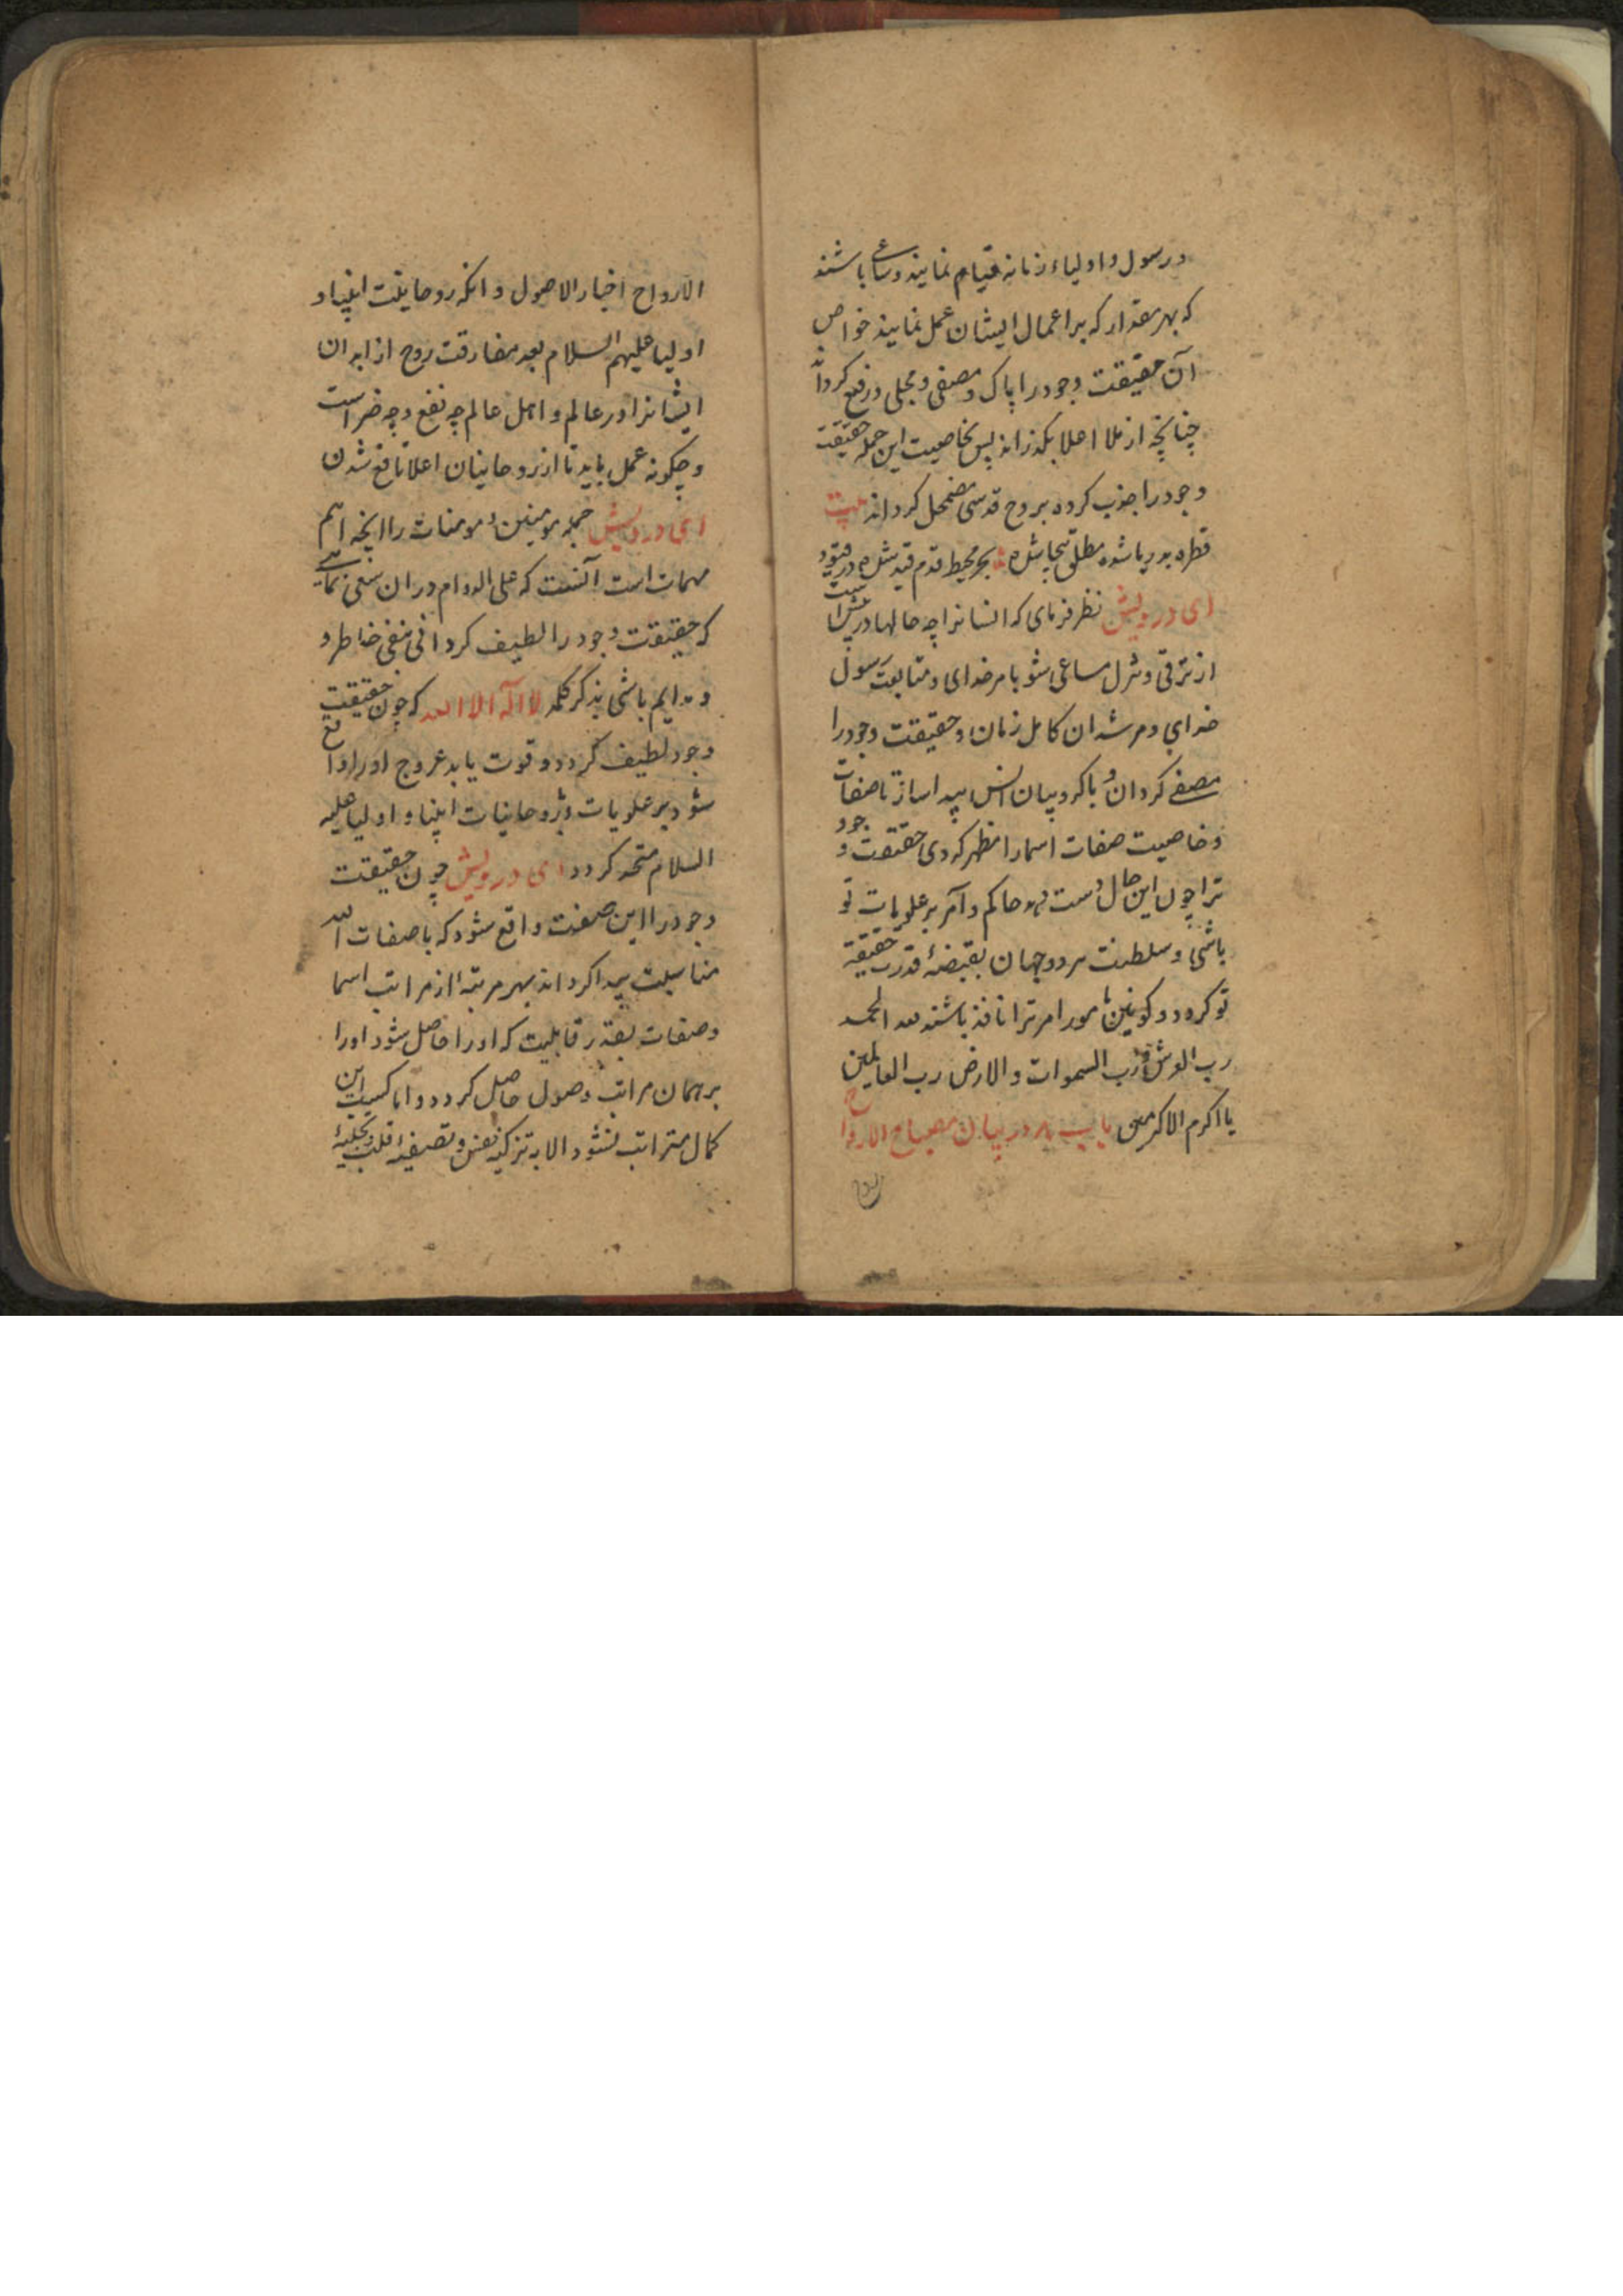 و رسول و اولیاء زمانه قیام نمایند و ساعی باشند
که بهر مقدار که بر اعمال ایشان عمل نمایند خواص
آن حقیقت وجود را پاک و مصفی و مجلی و رفع کرداند
چنانچه از ملا اعلا بکذراند پس بخاصیت این جمله حقیقت
وجود را جذب کرده بروح قدسی مضمحل کرداند بیت
قطره بدریا شده مطلق بجا شده بحر محیط قدم قید شده در قیود
ای درویش نظر فرمای که انسانرا چه حالها در پیش است
از ترقی و تنزل ساعی شو بامر خدای و متابعت رسول
خدای و مرشدان کامل زمان و حقیقت وجود را
مصفی کردان و با کروبیان انس پیدا ساز تا صفات
و خاصیت صفات اسما را مظهر کردی حقیقت وجود
ترا چون این حال دست دهد حاکم و آمر بر علویات تو
باشی و سلطنت هر دو جهان بقبضهٔ قدرت حقیقة
تو کردد و کونین مامور امر ترا نافذ باشند الحمد
رب العرش و رب السموات و الارض رب العالمین
یا اکرم الاکرمین باب در بیان مصباح الارواح
الارواح اخبار الاصول و انکه روحانیت انبیا و
اولیا علیهم السلام بعد مفارقت روح از ابدان
ایشانرا در عالم و اهل عالم چه نفع و چه ضر است
و چکونه عمل باید تا از روحانیان اعلا نافع شدن
ای درویش جمله مومنین و مومنات را انچه اهم
مهمات است آنست که علی الدوام دران سعی نمائے
که حقیقت وجود را لطیف کردانی نفی خاطر و
و دایم باشی بذکر کلمه لا اله الا الله که چون حقیقت
وجود لطیف کردد و قوت یابد عروج او را واقع
شود بر علویات و بروحانیات انبیا و اولیا علیه
السلام متحد کردد ای درویش چون حقیقت
وجود را این صفت واقع شود که با صفات الله
مناسبت پیدا کرداند بهر مرتبه از مراتب اسما
و صفات بقدر قابلیت که او را حاصل شود او را
بر همان مراتب وصول حاصل کردد و اما کسب این
کمال مراتب نشود الا به تزکیهٔ نفس و تصفیهٔ قلب و تجلیهٔ